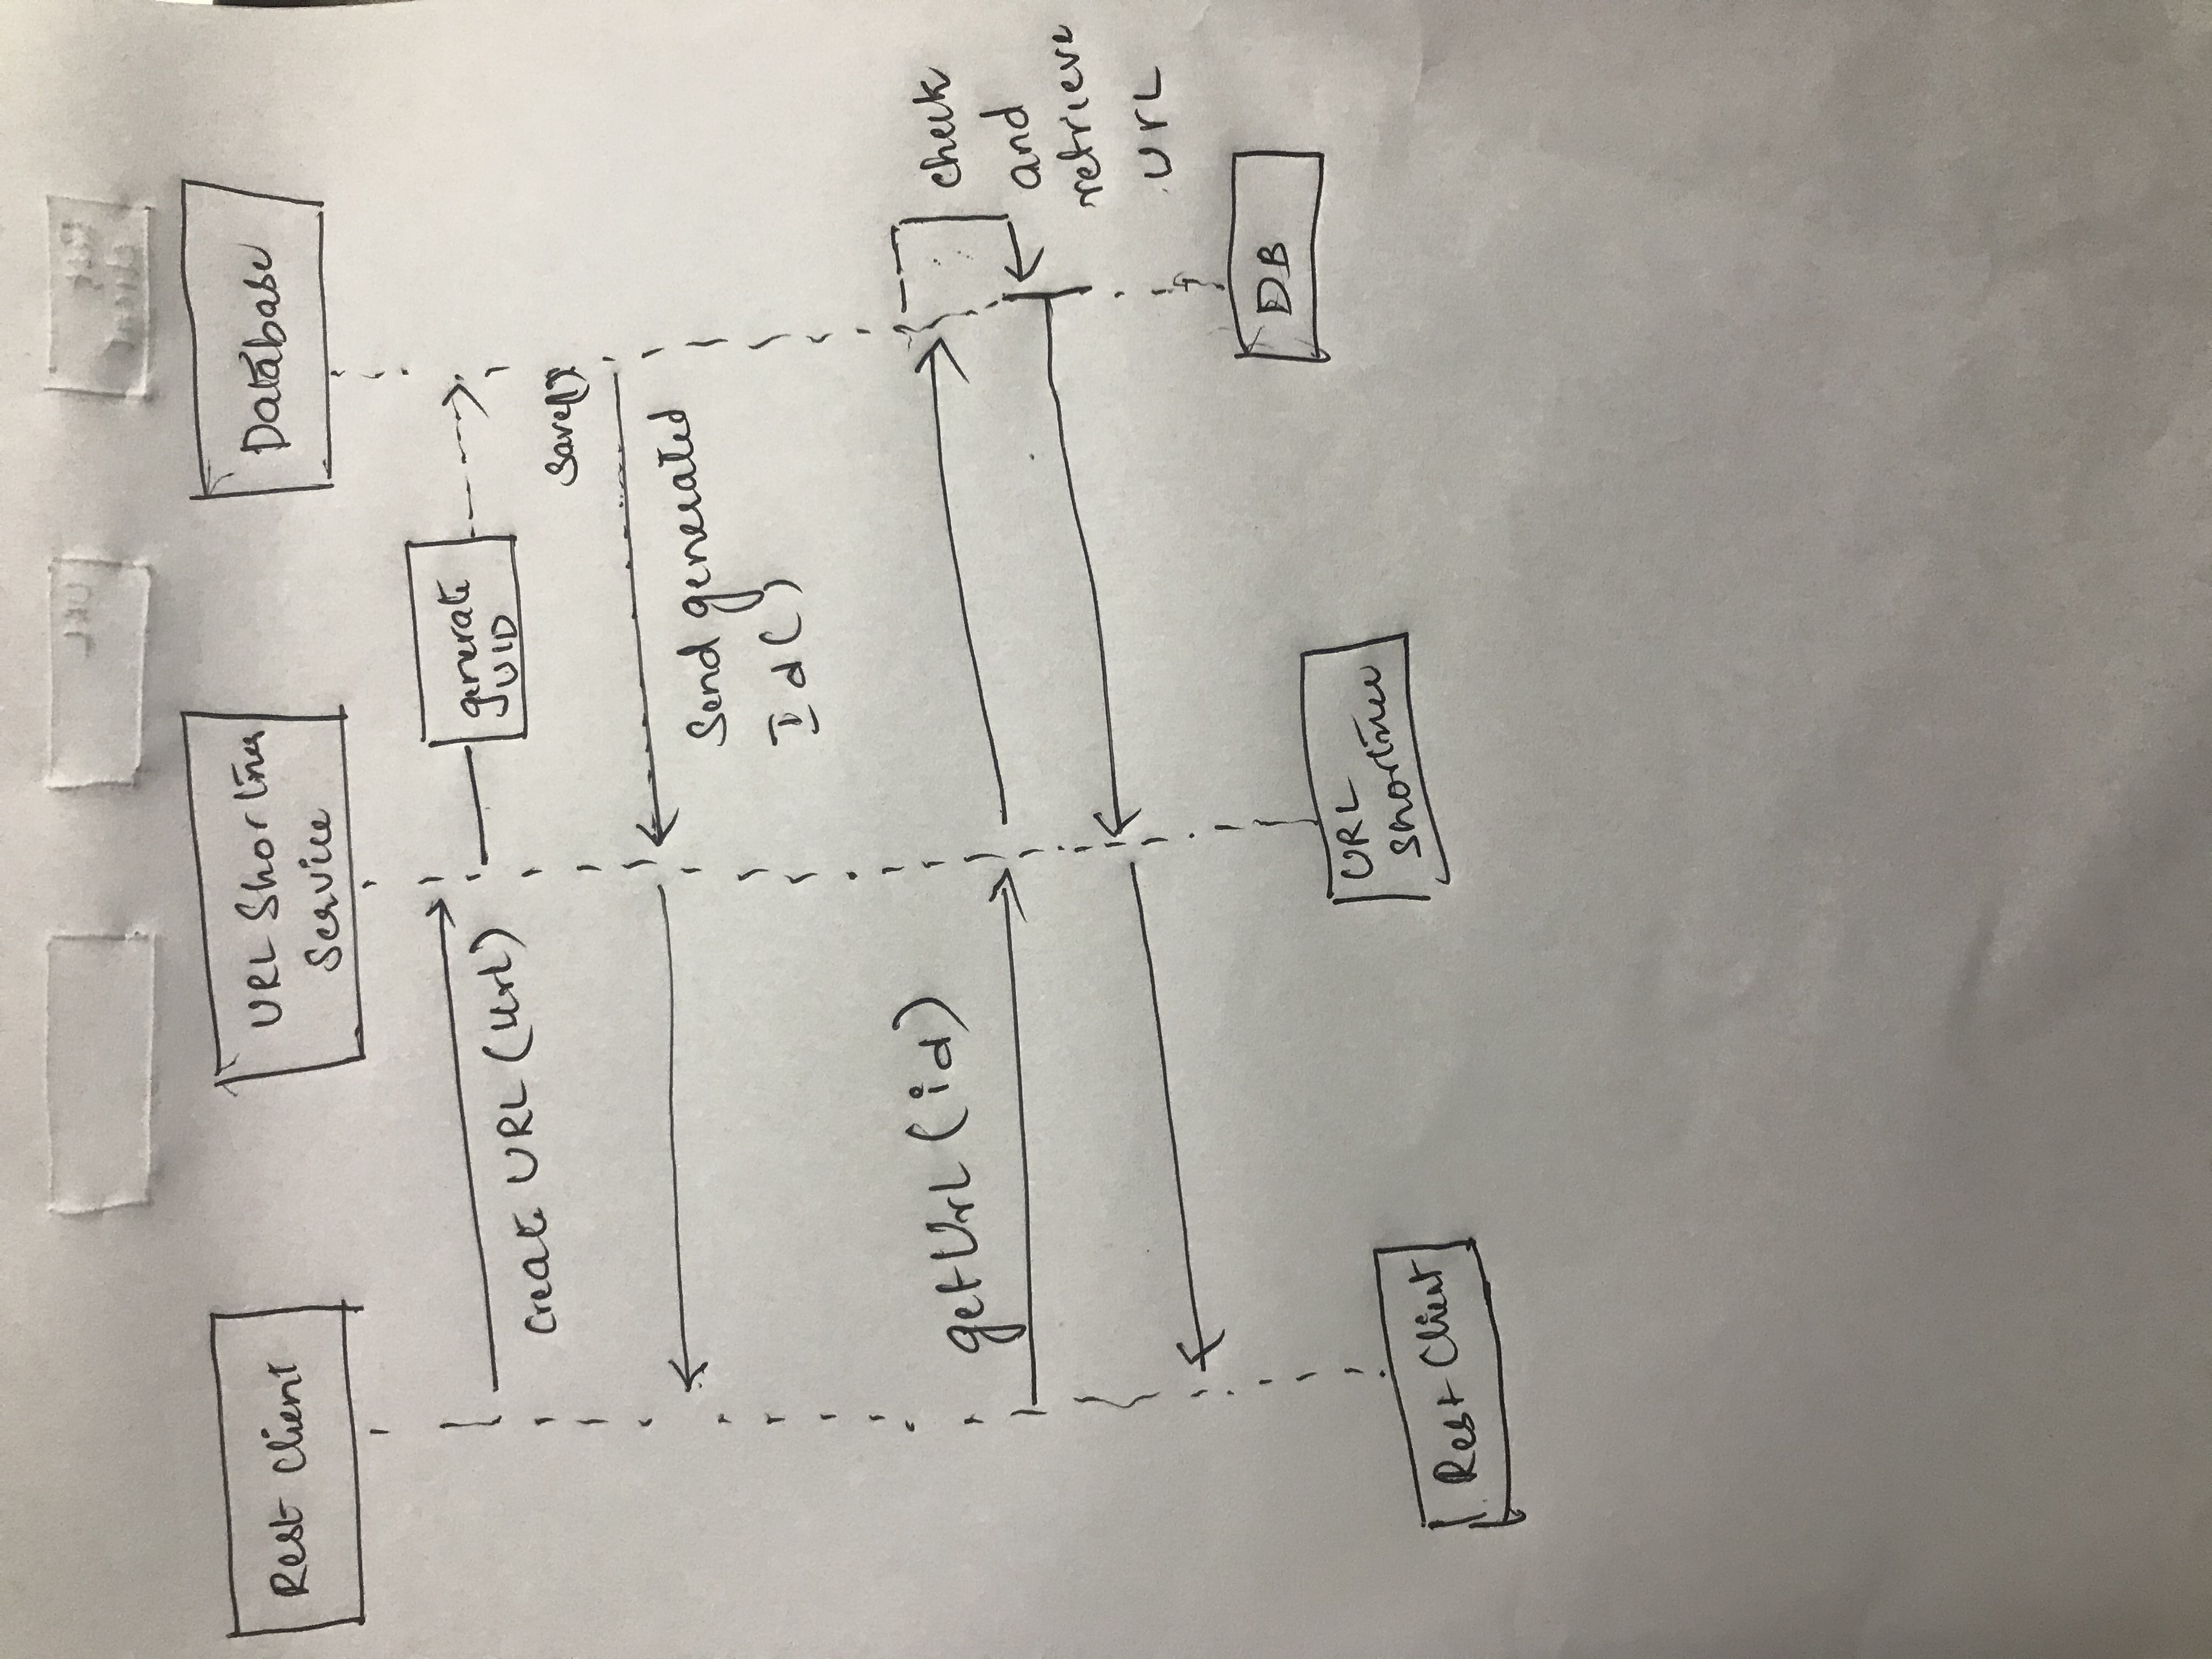 Rest Client
URL Shortner
Service
Database
Create URL (Url)
generate
UID
Save()
Send generated
Id()
getUrl (id)
check
and
retrieve
Url
DB
URL
Shortner
Rest Client